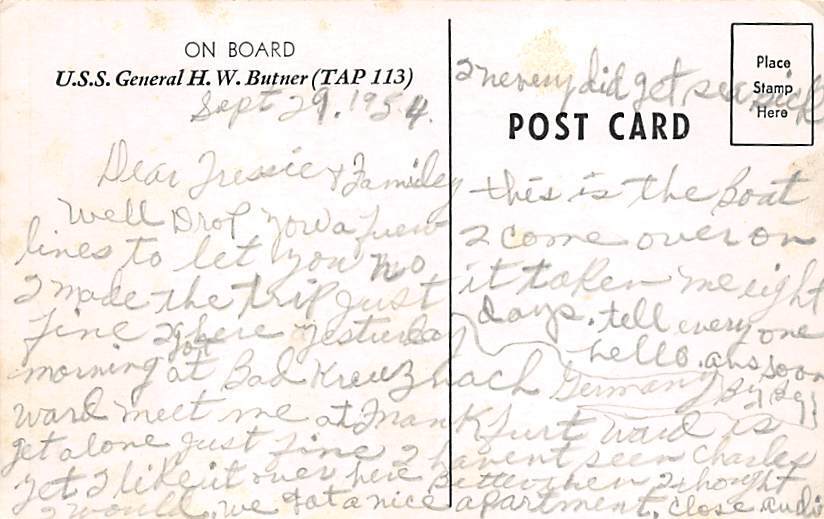 ON BOARD
U.S.S. General H. W. Butner (TAP 113)
Sept 29. 1954.
Dear Tressie & Familey
Well Drop you a few
lines to let you no
I made the trip Just
fine I got here yesturday
morning at Bad Kreuznach Germany
Ward meet me at Frankfurt Ward is
get alone Just fine I havent seen Charles
yet I like it over here Better then I thought
I would. we got a nice apartment. Close
I never did get sea sick
Place
Stamp
Here
POST CARD
this is the Boat
I come over on
it taken me eight
days. tell everyone
hello. ans soon
By By!